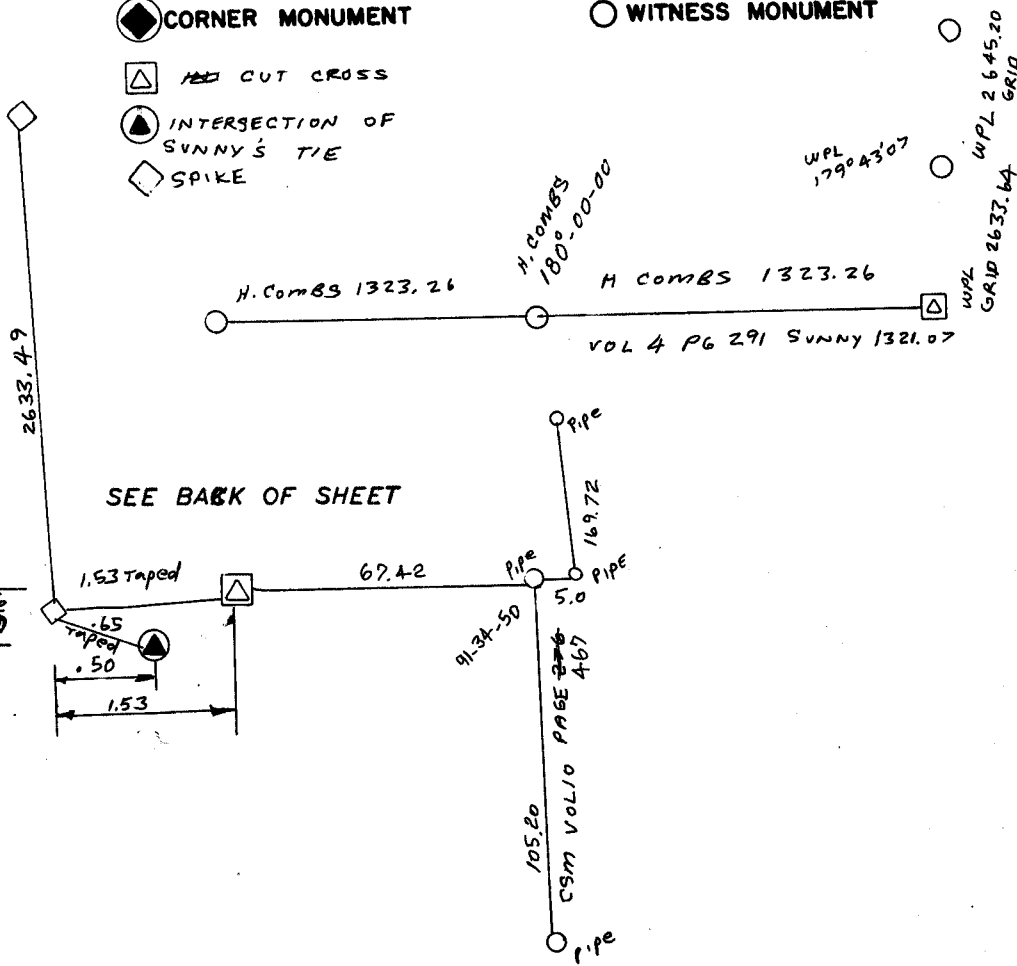 CORNER MONUMENT
WITNESS MONUMENT
CUT CROSS
INTERSECTION OF
SUNNY'S TIE
SPIKE
WPL 2645.20
GRID
WPL
179°43'07
WPL
GRID 2633.64
H. COMBS
180°-00-00
H. COMBS 1323.26
H COMBS 1323.26
VOL 4 PG 291 SUNNY 1321.07
2633.49
pipe
169.72
SEE BACK OF SHEET
1.53 Taped
67.42
Pipe
PIPE
5.0
.65
Taped
.50
1.53
91-34-50
CSM VOL10 PAGE 276
467
105.20
pipe